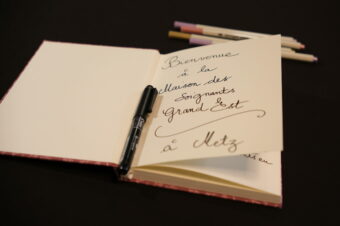 Bienvenue
à la
Maison des
Soignants
Grand Est
à Metz